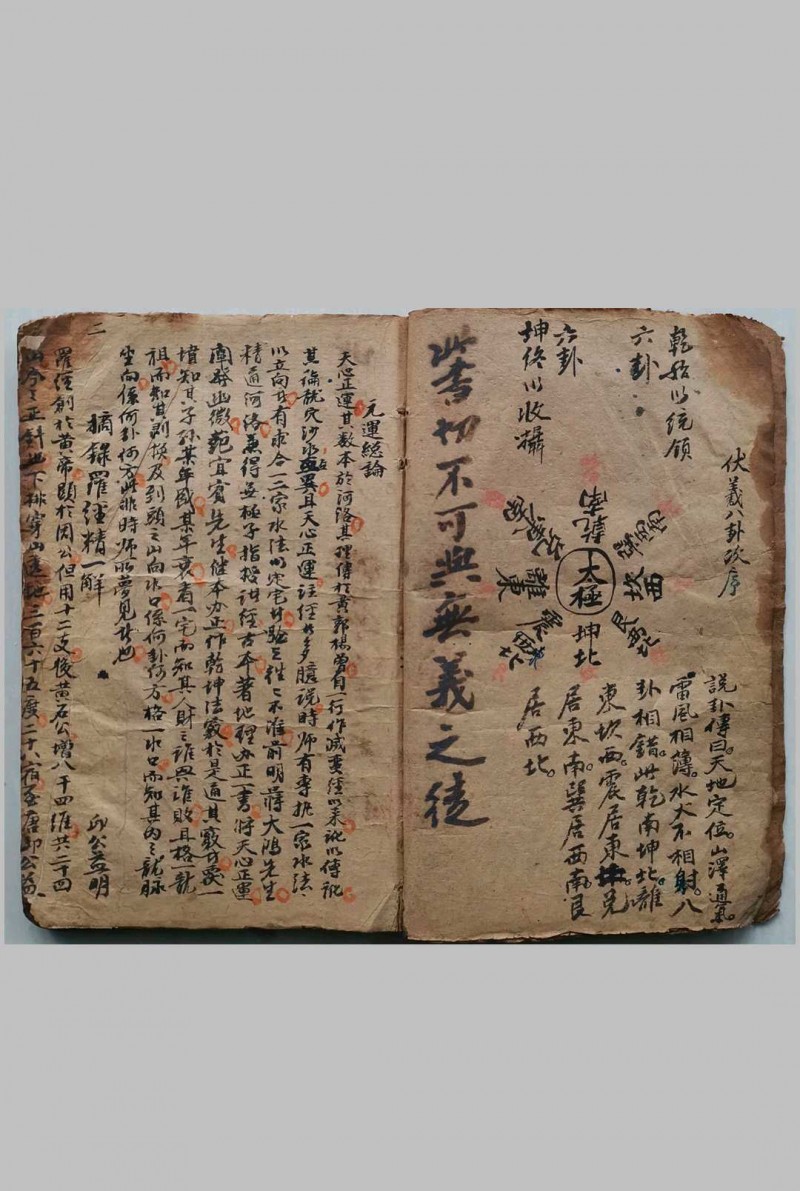 伏羲八卦次序
乾始以統領
六卦
六卦
坤終以收攝
乾南
太極
坤北
離東
坎西
震東北
艮西北
說卦傳曰。天地定位。山澤通氣。
雷風相薄。水火不相射。八
卦相錯。此乾南坤北。離
東坎西。震居東北。兌
居東南。巽居西南。艮
居西北。
此書切不可與無義之徒
元運總論
天心正運其数本於河洛其理傳於黄郭楊曾自一行作滅蛮经以来訛以傳訛
其論龍穴沙水無異耳天心正運註經者多臆說時师有專执一家水法
以立向者有求合一二家水法以定宅者驗之往々不准前明蔣大鴻先生
精通河洛兼得無極子指授訪經古本著地理辦正一書将天心正運
闡發幽微苑宜賓先生继本办正作乾坤法竅於是通其竅者覆一
墳知其子孫某年盛某年衰看一宅而知其人財之誰興誰敗且格一龍
祖而知其剥換及到頭之山向水口係何卦何方格一水口而知其内之龍脉
坐向係何卦何方此非時师所夢見者也
摘錄羅經精一解
邱公益明
二
羅经創於黄帝顕於周公但用十二支後黄石公增八干四維共二十四
山分之正針地下排穿山透地三百六十五度二十八宿至唐邱公為